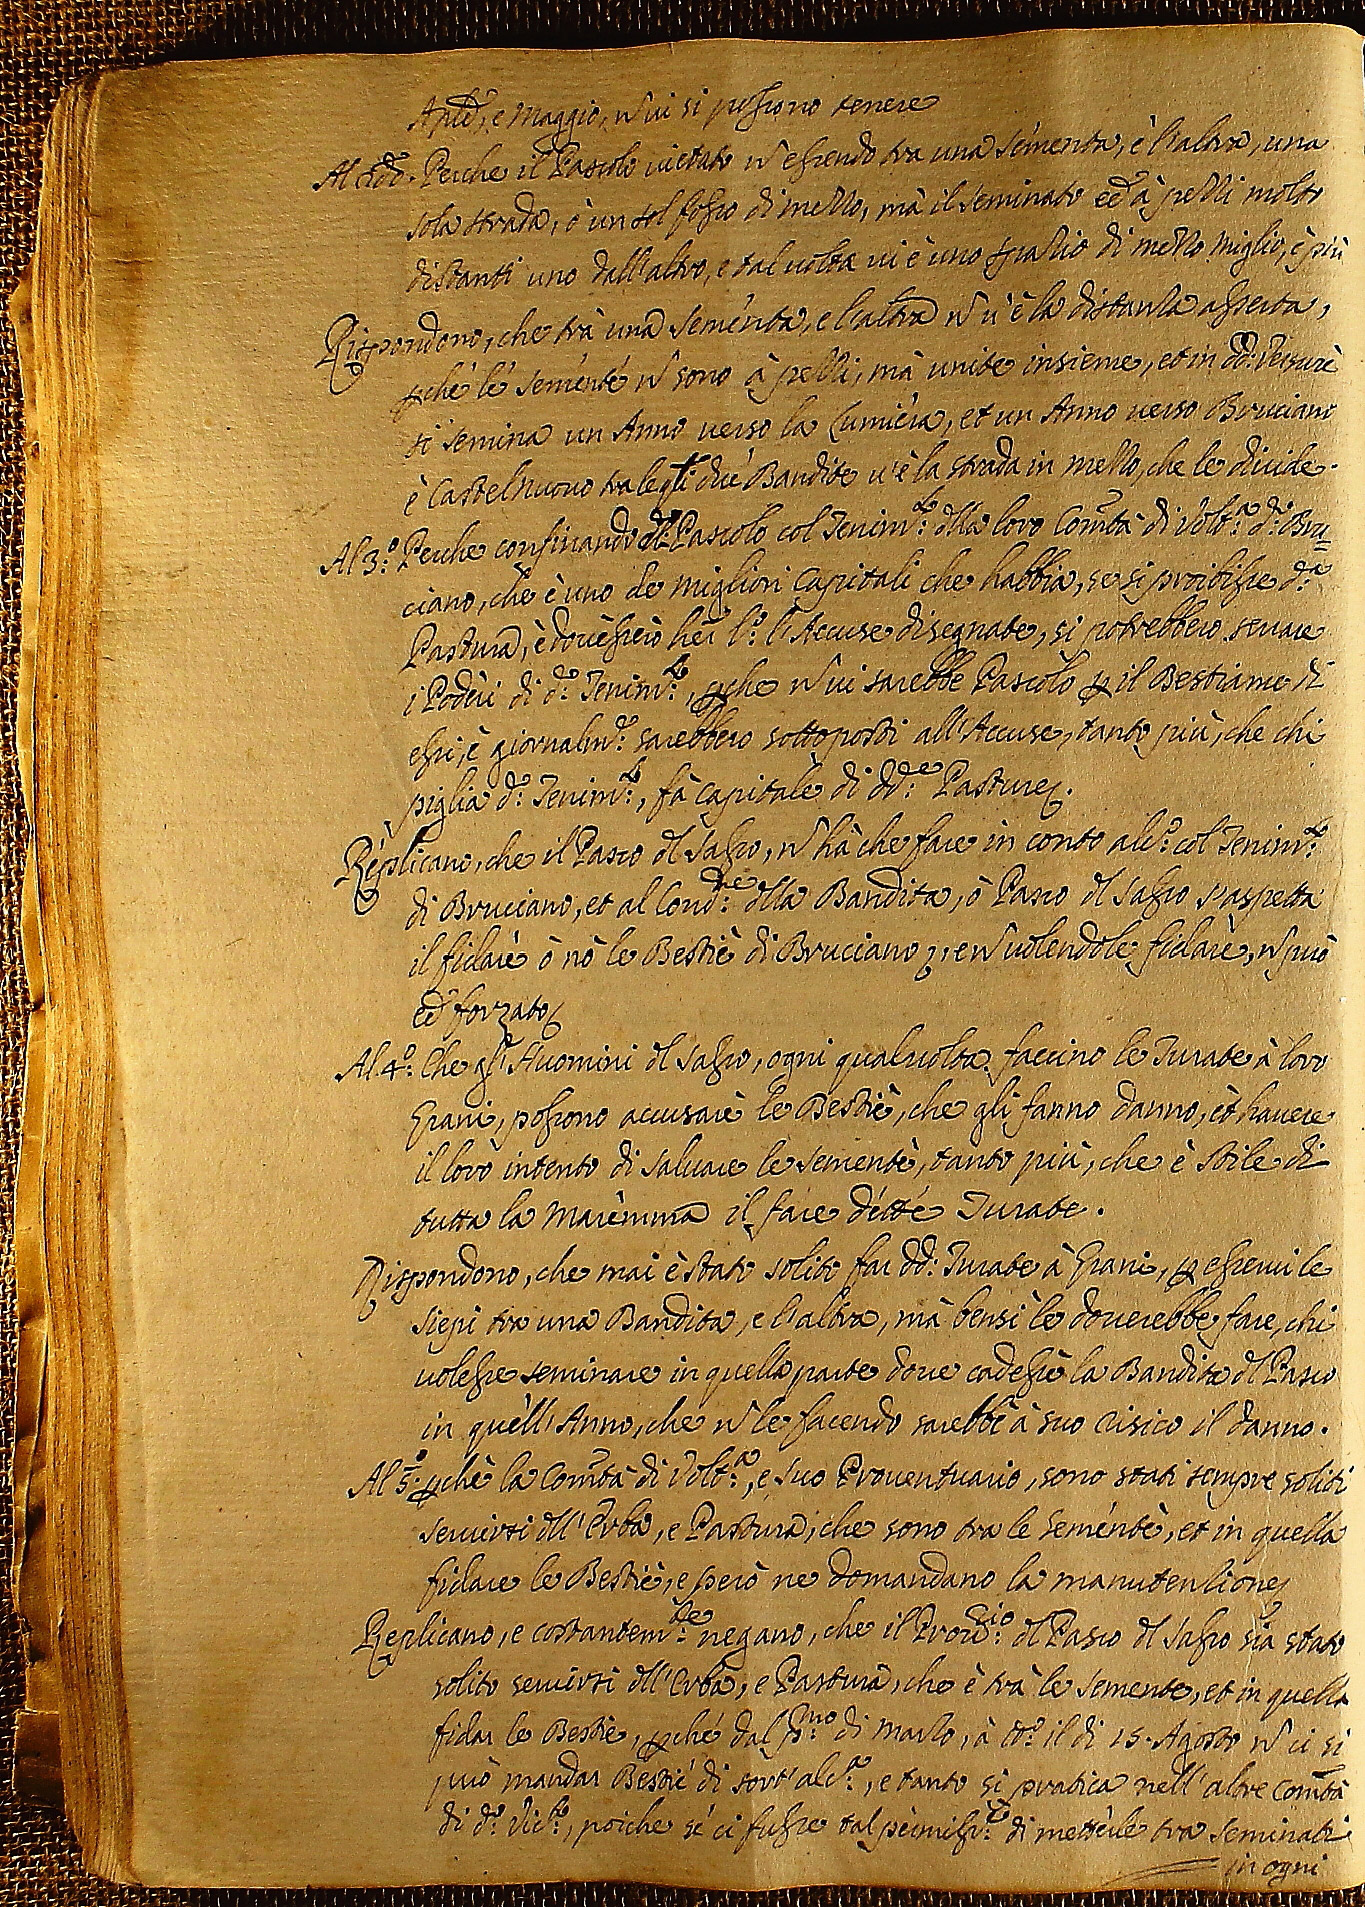 Aple, e Maggio, ñ vi si possono tenere
Al do. Perche il Pascolo vietato ñ essendo tra una sementa, e l'altra, una
sola strada, è un sol fosso di mezzo, mà il seminato ed à pezzi molto
distanti uno dall'altro, e tal volta vi è uno spazio di mezzo miglio, è più
Rispondono, che trà una sementa, e l'altra ñ v'è la distanza asserta,
pche le semente ñ sono à pezzi, mà unite insieme, et in dd: Pasture
si semina un Anno verso la Cumiera, et un Anno verso Bruciano
è Castelnuovo tra le qti due Bandite v'è la strada in mezzo, che le divide.
Al 3.º Perche confinando dº: Pascolo col Tenimto: dlla loro Comtà di Voltª: dº: Bru=
ciano, che è uno de migliori Capitali che habbia, se si proibisse dª:
Pastura, è dovessero l'Accuse disegnate, si potrebbero serrare
i Poderi di dº: Tenimto:, pche ñ vi sarebbe Pascolo p il Bestiame di
essi, è giornalmte: sarebbero sottoposti all'Accuse, tanto più, che chi
piglia dº: Tenimto:, fà capitale di dde: Pasture.
Replicano, che il Pasco dl Sasso, ñ hà che fare in conto alcº: col Tenimto:
di Bruciano, et al Condre: dlla Bandita, ò Pasco dl Sasso s'aspetta
il fidare ò nò le Bestie di Bruciano, e ñ volendole fidare, ñ può
eẽ forzato
Al 4.º Che gl'Huomini dl Sasso, ogni qual volta faccino le Turate à loro
Grani, possono accusare le Bestie, che gli fanno danno, et havere
il loro intento di salvare le semente, tanto più, che è stile di
tutta la Maremma il fare dette Turate.
Rispondono, che mai è stato solito far dd: Turate à Grani, p esservi le
siepi tra una Bandita, e l'altra, mà bensi le doverebbe fare, chi
volesse seminare in quella parte dove cadesse la Bandita dl Pasco
in quell'Anno, che ñ le facendo sarebbe à suo risico il danno.
Al 5.º pche la Comtà di Voltª:, e Suo Proventuario, sono stati sempre soliti
servirsi dll'Erba, e Pastura, che sono tra le semente, et in quella
fidare le Bestie, e però ne domandano la manutenzione
Replicano, e costantemte: negano, che il Provrio: dl Pasco dl Sasso sia stato
solito servirsi dll'Erba, e Pastura, che è trà le semente, et in quella
fidar le Bestie, pche dal pmo: di Marzo, à tº: il di 15. Agosto ñ ci si
può mandar Bestie di sort'alcª:, e tanto si pratica nell'altre Comtà
di dº: Victo:, poiche se ci fusse tal permisse: di metterle tra seminati
in ogni